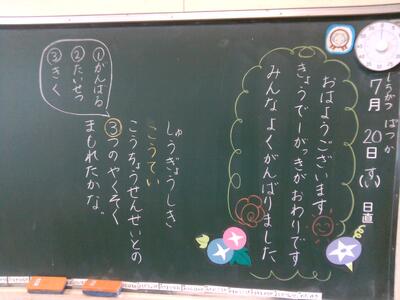 しちがつ はつか
7月20日(すい)日直
おはようございます
きょうでーがっきがおわりです
みんなよくがんばりました
しゅうぎょうしき
こうてい
こうちょうせんせいとの
③つのやくそく
まもれたかな。
①がんばる
②たいせつ
③きく